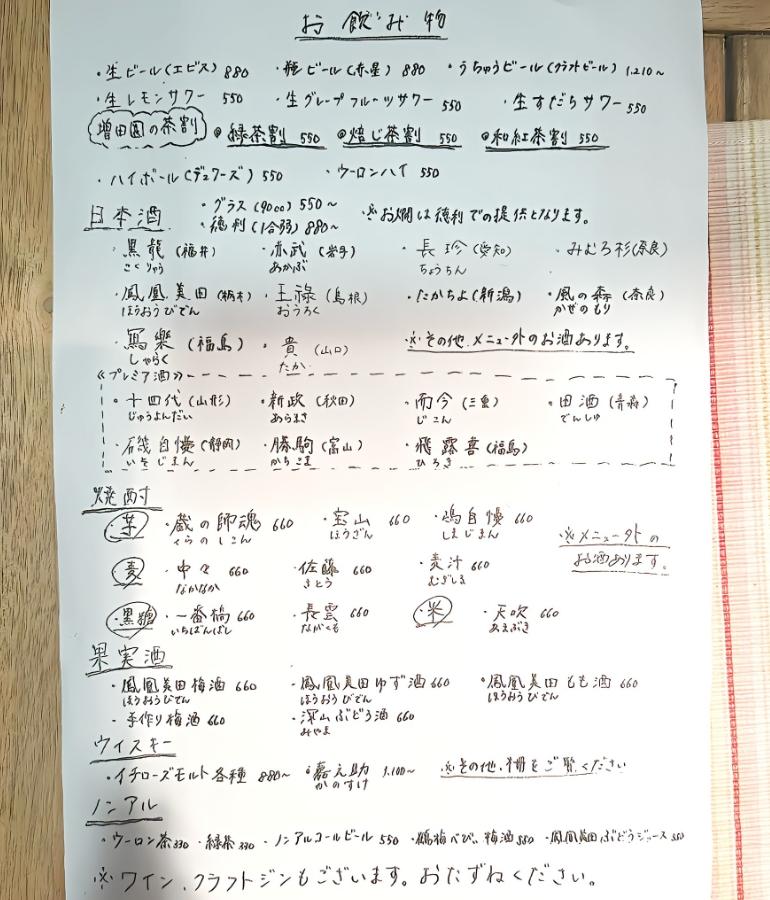 お飲み物
・生ビール(エビス) 880 ・瓶ビール(赤星) 880 ・うちゅうビール(クラフトビール) 1,210~
・生レモンサワー 550 ・生グレープフルーツサワー 550 ・生すだちサワー 550
増田園の茶割 @緑茶割 550 @焙じ茶割 550 @和紅茶割 550
・ハイボール(デュワーズ) 550 ・ウーロンハイ 550
日本酒 ・グラス(90cc) 550~
・徳利(1合弱) 880~ ※お燗は徳利での提供となります。
・黒龍(福井) ・赤武(岩手) ・長珍(愛知) ・みむろ杉(奈良)
こくりゅう あかぶ ちょうちん
・鳳凰美田(栃木) ・王祿(島根) ・たかちよ(新潟) ・風の森(奈良)
ほうおうびでん おうろく かぜのもり
・寫樂(福島) ・貴(山口) ※その他、メニュー外のお酒あります。
しゃらく たか
≪プレミア酒≫
・十四代(山形) ・新政(秋田) ・而今(三重) ・田酒(青森)
じゅうよんだい あらまさ じこん でんしゅ
・磯自慢(静岡) ・勝駒(富山) ・飛露喜(福島)
いそじまん かちこま ひろき
焼酎
芋 ・蔵の師魂 660 ・宝山 660 ・嶋自慢 660 ※メニュー外の
くらのしこん ほうざん しまじまん お酒あります。
麦 ・中々 660 ・佐藤 660 ・麦汁 660
なかなか さとう むぎしる
黒糖 ・一番橋 660 ・長雲 660 米 ・天吹 660
いちばんばし ながくも あまぶき
果実酒
・鳳凰美田梅酒 660 ・鳳凰美田ゆず酒 660 ・鳳凰美田もも酒 660
ほうおうびでん ほうおうびでん ほうおうびでん
・手作り梅酒 660 ・深山ぶどう酒 660
みやま
ウイスキー
・イチローズモルト各種 880~ ・嘉之助 1,100~ ※その他、棚をご覧ください
かのすけ
ノンアル
・ウーロン茶 330 ・緑茶 330 ・ノンアルコールビール 550 ・鶴梅べびぃ梅酒 550 ・鳳凰美田ぶどうジュース 550
※ワイン、クラフトジンもございます。おたずねください。